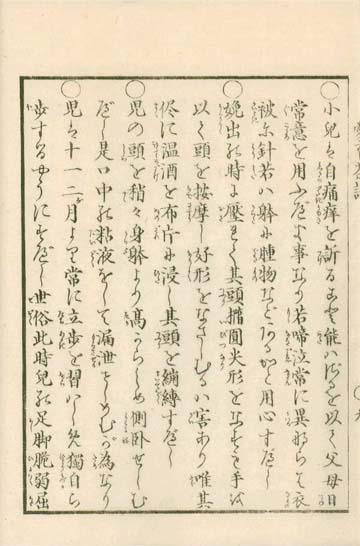 〇小兒ハ自痛痒を訴る事能ハざるを以て父母日
常意を用ふべき事なり若啼泣常に異ならバ衣
被に針若ハ躰に腫物などあるかと用心すべし
〇娩出の時に壓れて其頭楕圓尖形となるとき手を
以て頭を按摩し好形となさしむるハ害あり唯其
侭に温酒を布片に浸し其頭を繃縛すべし
〇児の頭を稍々身躰より高からしめ側臥せしむ
べし是口中の粘液をして漏泄せしめむが為なり
〇児ハ十一二ケ月より常に立歩を習ハしめ獨自ら
歩するやうにすべし世俗此時兒の足脚脆弱屈